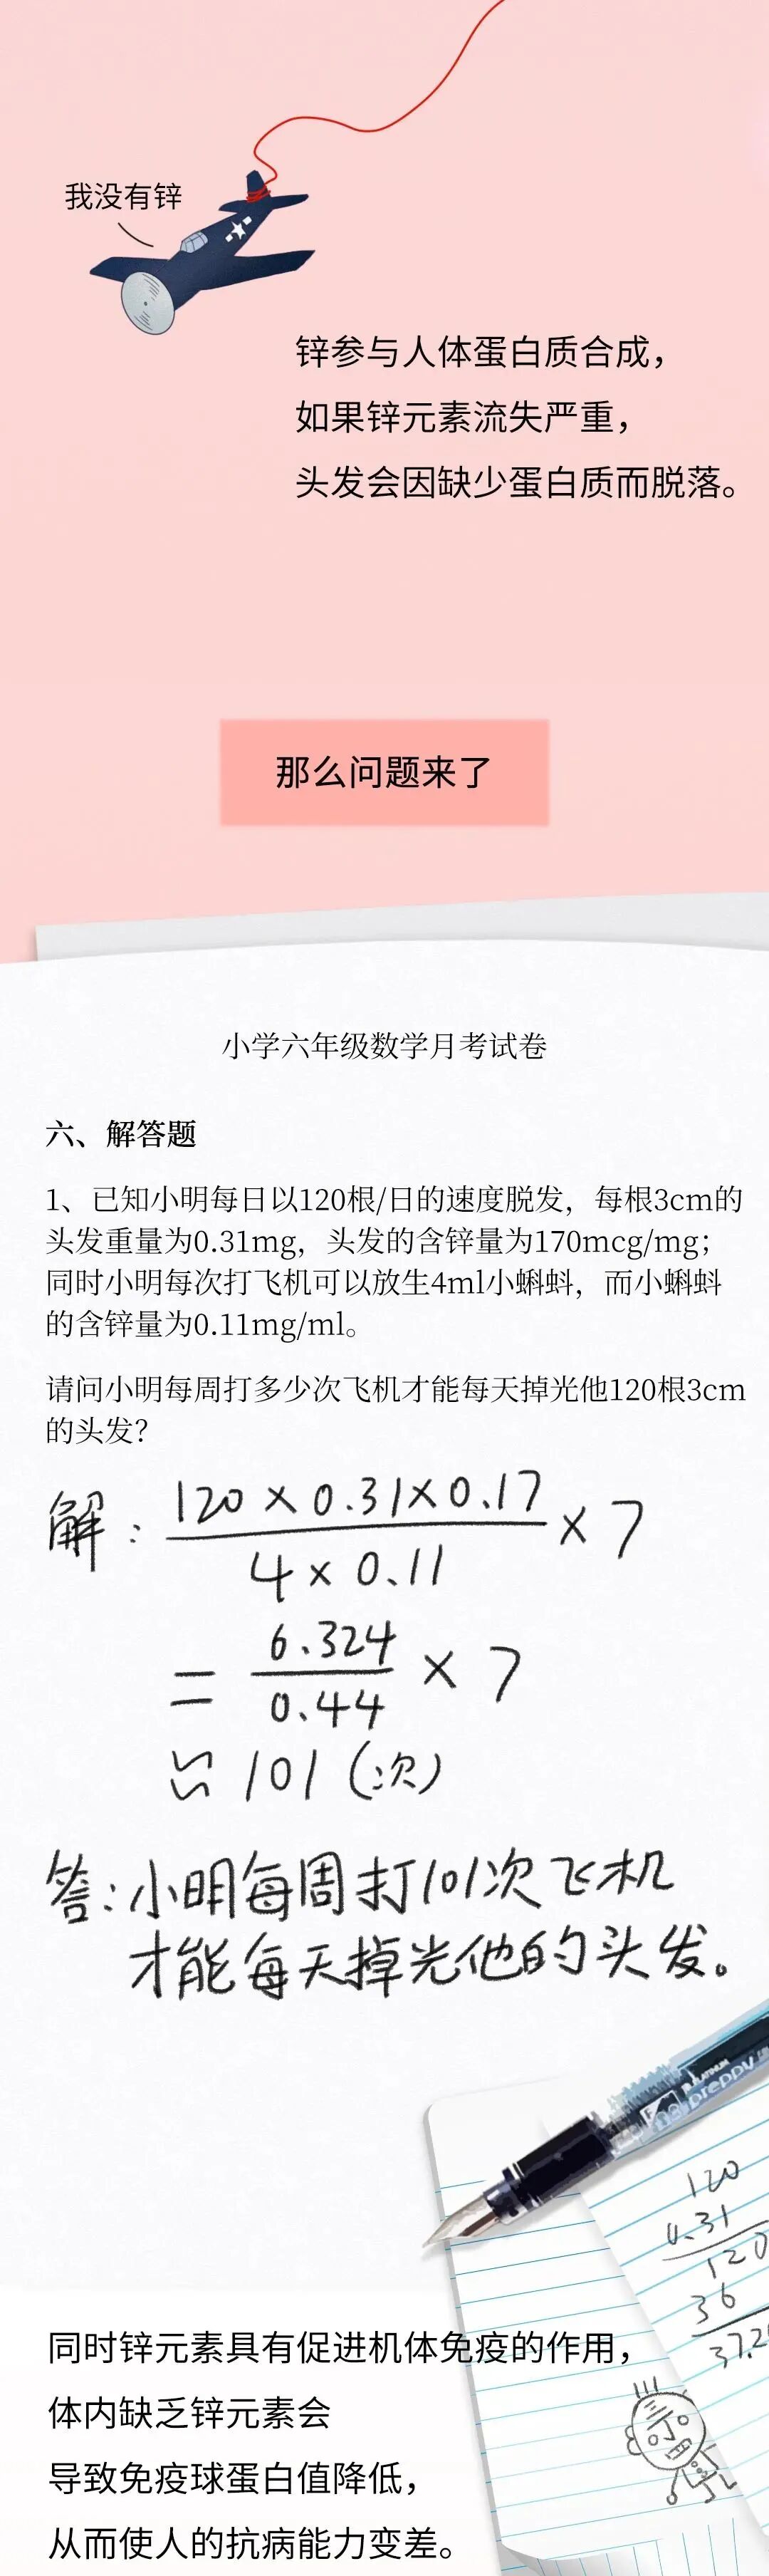 我没有锌
锌参与人体蛋白质合成，
如果锌元素流失严重，
头发会因缺少蛋白质而脱落。
那么问题来了
小学六年级数学月考试卷
六、解答题
1、已知小明每日以120根/日的速度脱发，每根3cm的
头发重量为0.31mg，头发的含锌量为170mcg/mg；
同时小明每次打飞机可以放生4ml小蝌蚪，而小蝌蚪
的含锌量为0.11mg/ml。
请问小明每周打多少次飞机才能每天掉光他120根3cm
的头发？
解：120×0.31×0.17
4×0.11
×7
= 6.324
0.44
×7
≈ 101（次）
答：小明每周打101次飞机
才能每天掉光他的头发。
PLATINUM
preppy
120
0.31
120
36
37.2
同时锌元素具有促进机体免疫的作用，
体内缺乏锌元素会
导致免疫球蛋白值降低，
从而使人的抗病能力变差。